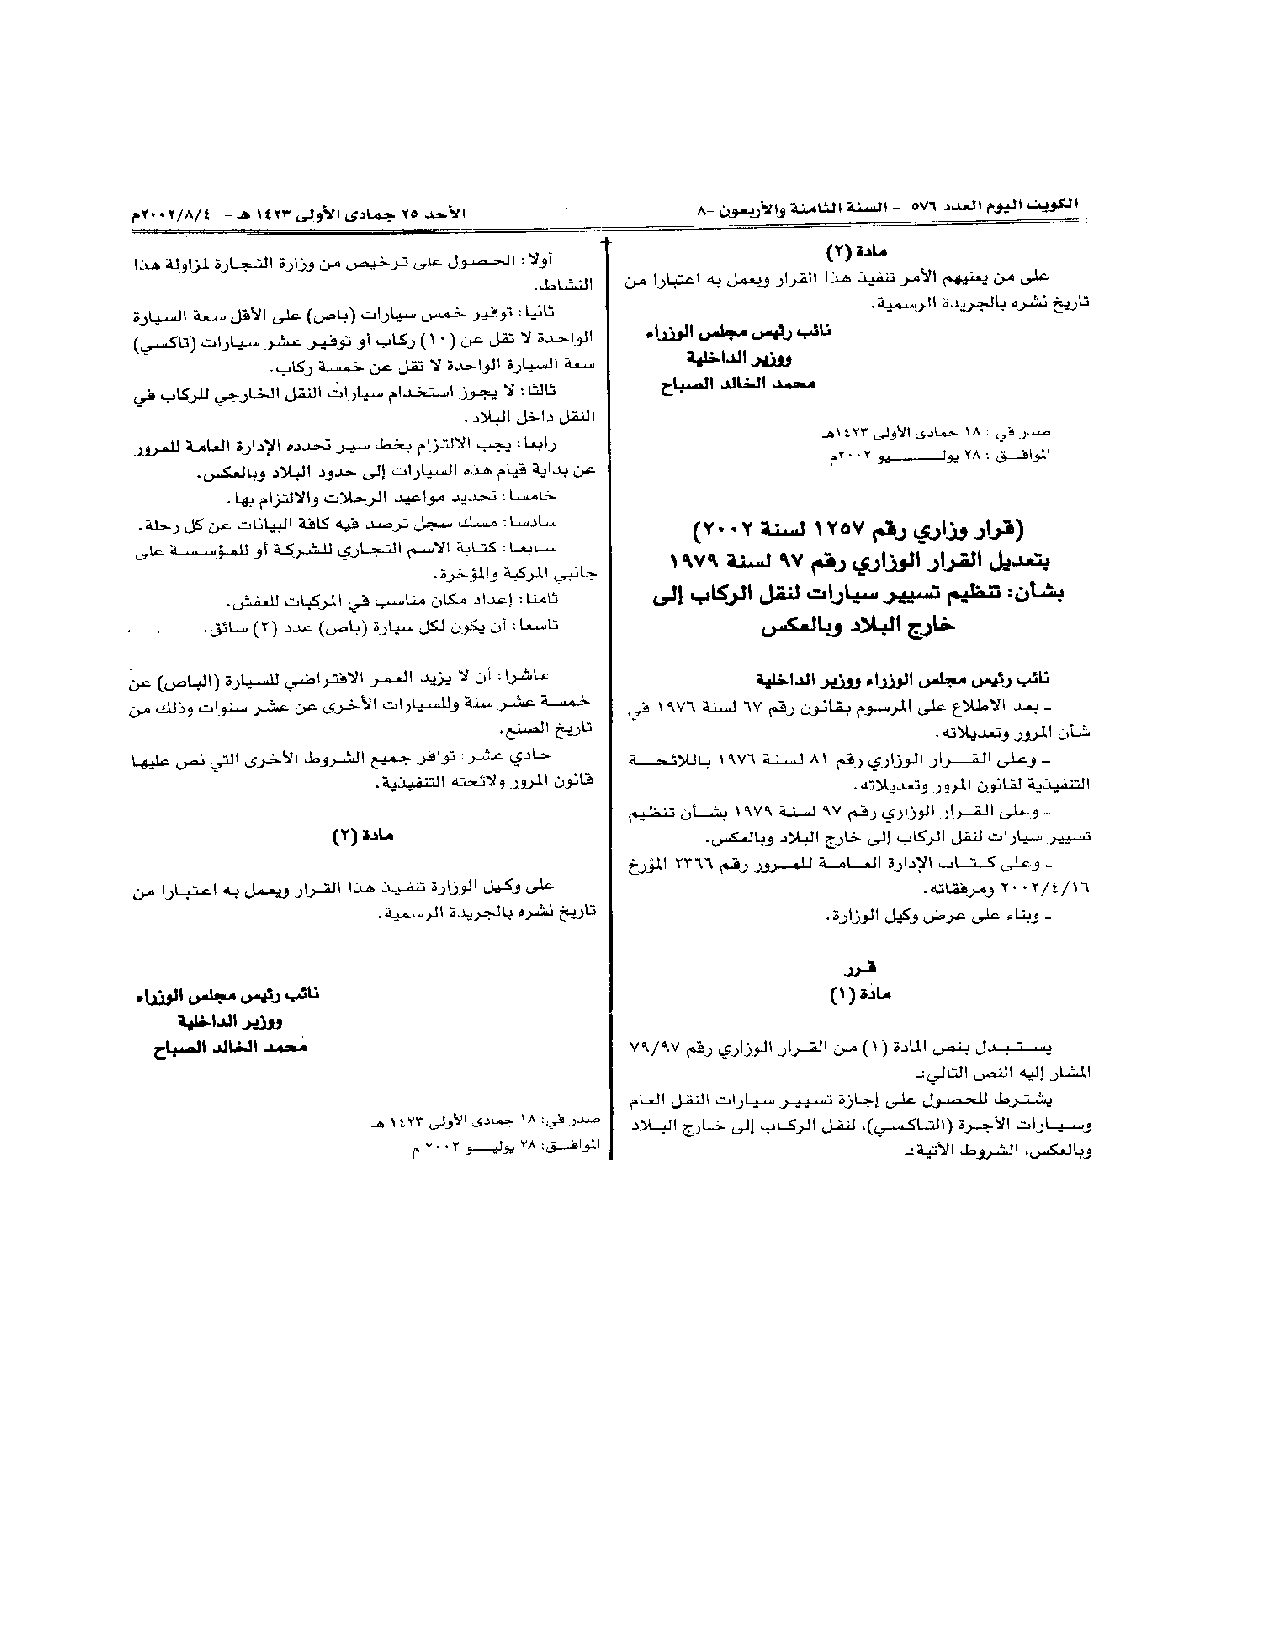 الكويت اليوم العدد ٥٧٦ - السنة الثامنة والأربعون -٨
الأحد ٢٥ جمادى الأولى ١٤٢٣ هـ - ٢٠٠٢/٨/٤م
مادة (٢)
على من يعنيهم الأمر تنفيذ هذا القرار ويعمل به اعتبارا من
تاريخ نشره بالجريدة الرسمية.
نائب رئيس مجلس الوزراء
ووزير الداخلية
محمد الخالد الصباح
صدر في : ١٨ جمادى الأولى ١٤٢٣هـ
الموافـــق : ٢٨ يولـــــــيو ٢٠٠٢م
(قرار وزاري رقم ١٢٥٧ لسنة ٢٠٠٢)
بتعديل القرار الوزاري رقم ٩٧ لسنة ١٩٧٩
بشأن: تنظيم تسيير سيارات لنقل الركاب إلى
خارج البلاد وبالعكس
نائب رئيس مجلس الوزراء ووزير الداخلية
- بعد الاطلاع على المرسوم بقانون رقم ٦٧ لسنة ١٩٧٦ في
شأن المرور وتعديلاته.
- وعلى القـــرار الوزاري رقم ٨١ لسنة ١٩٧٦ باللائحـــة
التنفيذية لقانون المرور وتعديلاته.
- وعلى القـرار الوزاري رقم ٩٧ لسنة ١٩٧٩ بشـأن تنظيم
تسيير سيارات لنقل الركاب إلى خارج البلاد وبالعكس.
- وعلى كـتـاب الإدارة العـامـة للمـرور رقم ٢٣٦٦ المؤرخ
٢٠٠٢/٤/١٦ ومرفقاته.
- وبناء على عرض وكيل الوزارة.
قـرر
مادة (١)
يستـبـدل بنص المادة (١) من القـرار الوزاري رقم ٧٩/٩٧
المشار إليه النص التالي:ـ
يشـترط للحصول على إجازة تسيير سيارات النقل العام
وسـيـارات الأجـرة (التـاكسي)، لنقل الركـاب إلى خـارج البـلاد
وبالعكس، الشروط الآتية:ـ
أولا: الحصول على ترخيص من وزارة التجـارة لمزاولة هذا
النشاط.
ثانيا: توفير خمس سيارات (باص) على الأقل سعة السيارة
الواحدة لا تقل عن (١٠) ركاب أو توفير عشر سيارات (تاكسي)
سعة السيارة الواحدة لا تقل عن خمسة ركاب.
ثالثا: لا يجوز استخدام سيارات النقل الخارجي للركاب في
النقل داخل البلاد.
رابعا: يجب الالتزام بخط سير تحدده الإدارة العامة للمرور
عن بداية قيام هذه السيارات إلى حدود البلاد وبالعكس.
خامسا: تحديد مواعيد الرحلات والالتزام بها.
سادسا: مسك سجل ترصد فيه كافة البيانات عن كل رحلة.
سـابعـا: كتابة الاسم التجاري للشركة أو للمؤسسـة على
جانبي المركبة والمؤخرة.
ثامنا: إعداد مكان مناسب في المركبات للعفش.
تاسعا: أن يكون لكل سيارة (باص) عدد (٢) سائق.
عاشرا: أن لا يزيد العمر الافتراضي للسيارة (الباص) عن
خمسـة عشـر سنة وللسيارات الأخرى عن عشر سنوات وذلك من
تاريخ الصنع.
حادي عشر: توافر جميع الشروط الأخرى التي نص عليها
قانون المرور ولائحته التنفيذية.
مادة (٢)
على وكيل الوزارة تنفيذ هذا القـرار ويعمل به اعتبـارا من
تاريخ نشره بالجريدة الرسمية.
نائب رئيس مجلس الوزراء
ووزير الداخلية
محمد الخالد الصباح
صدر في: ١٨ جمادى الأولى ١٤٢٣ هـ
الموافـــق: ٢٨ يوليـــو ٢٠٠٢ م